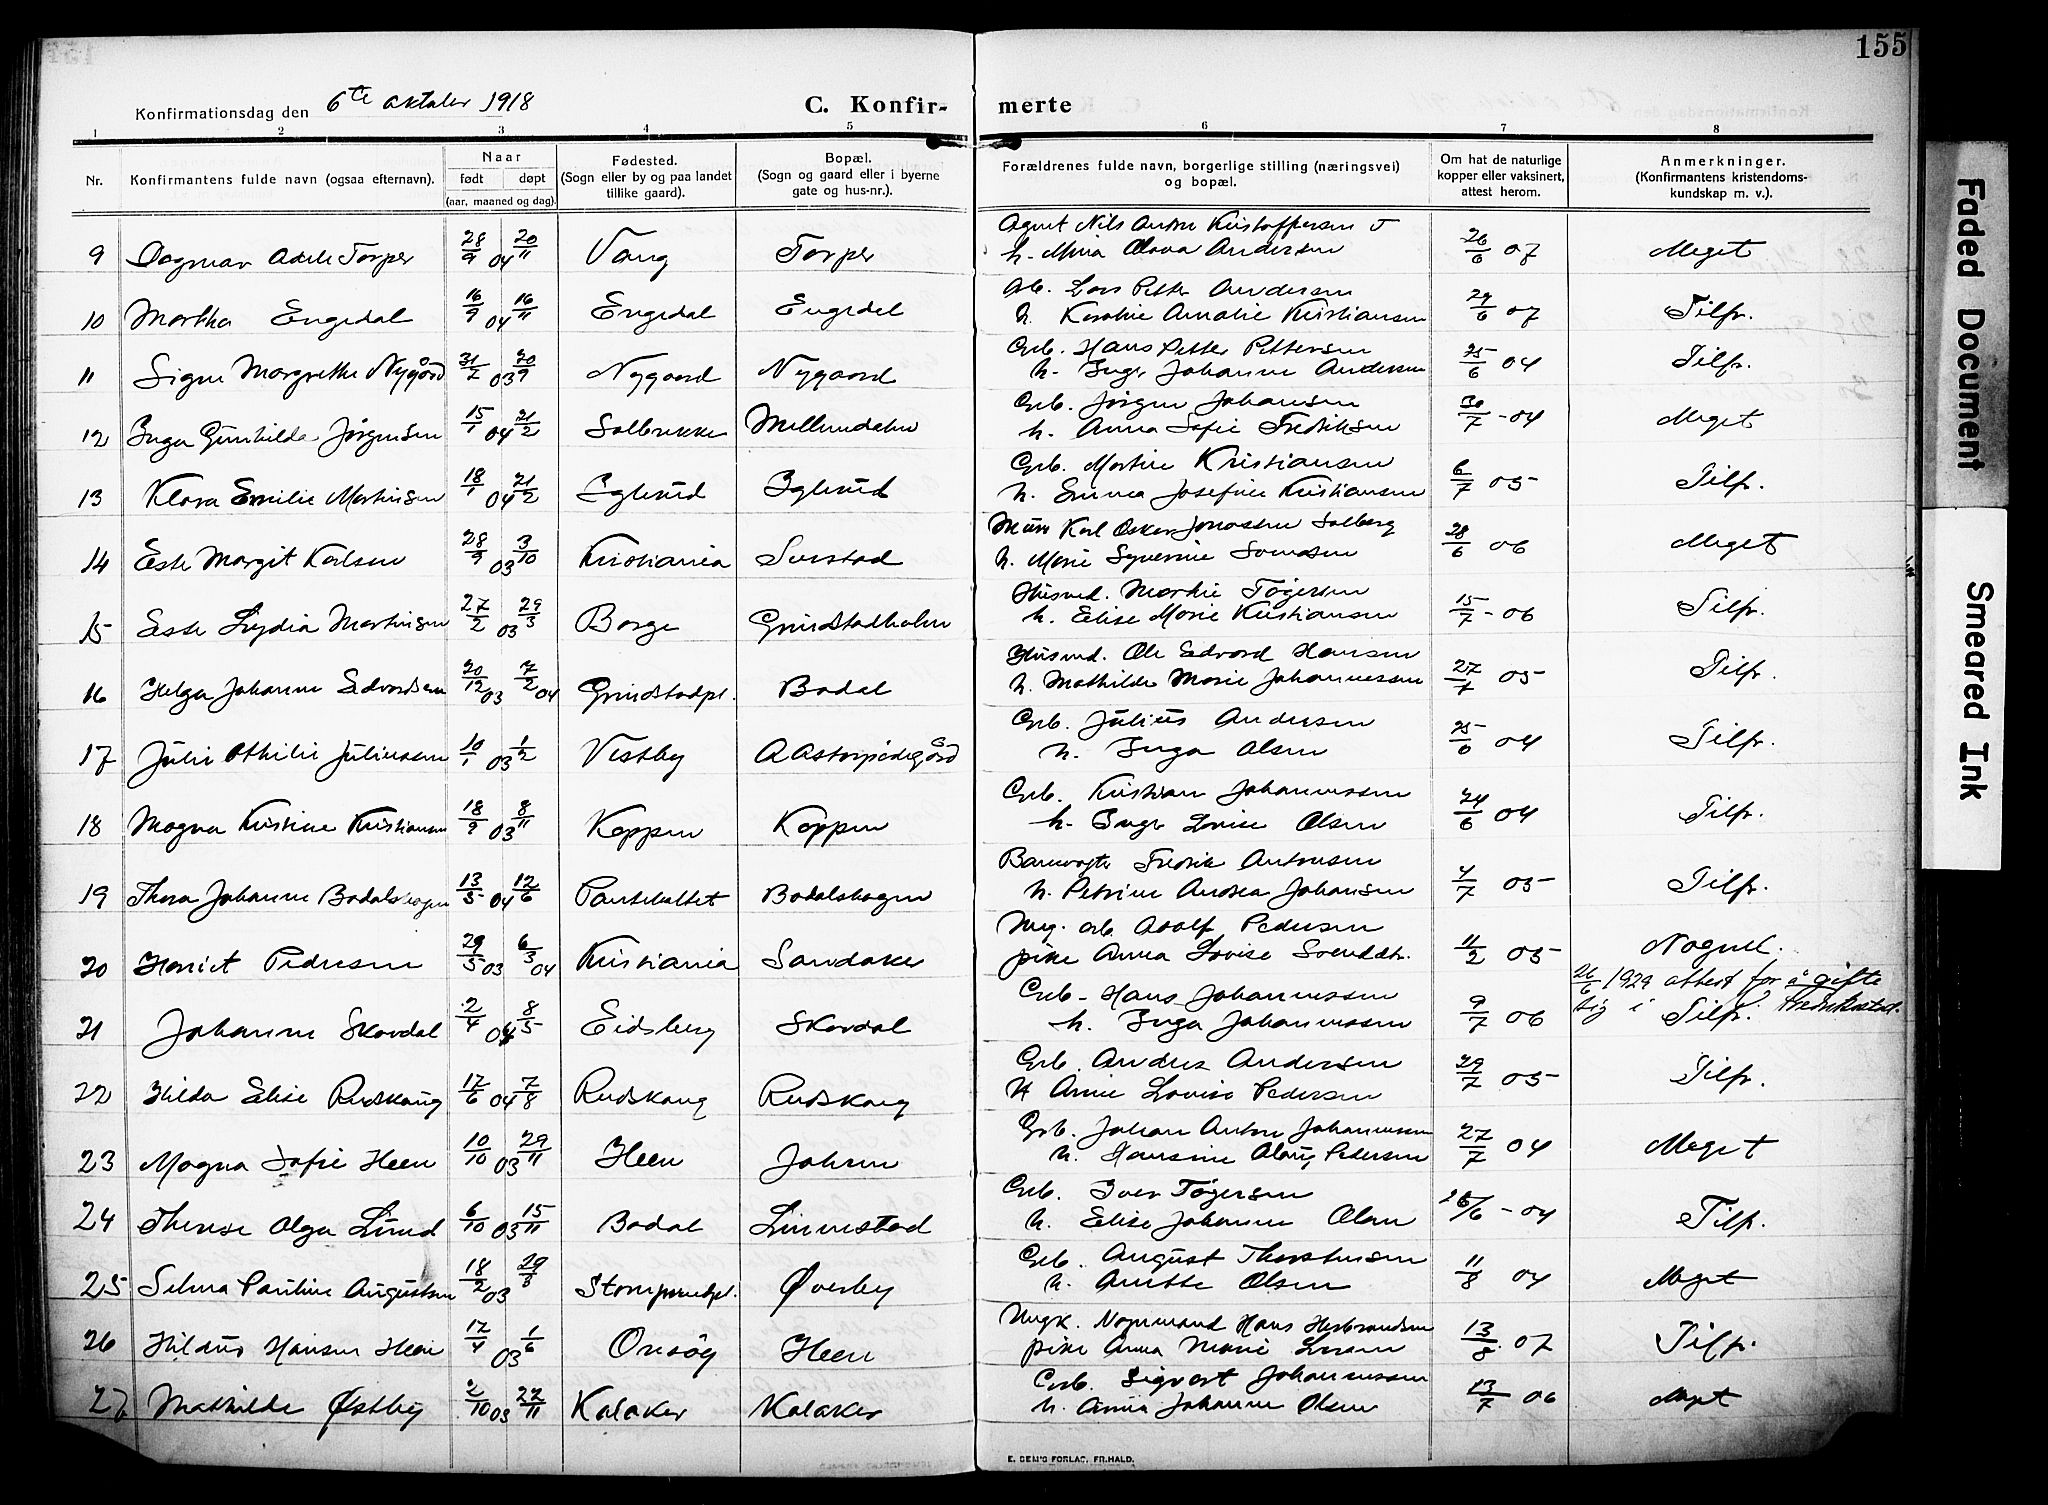 155
Konfirmationsdag den 6te oktober 1918
C. Konfir- merte
1 2 3 4 5 6 7 8
Nr.
Konfirmantens fulde navn (ogsaa efternavn).
Naar
født døpt
(aar, maaned og dag).
Fødested.
(Sogn eller by og paa landet
tillike gaard).
Bopæl.
(Sogn og gaard eller i byerne
gate og hus-nr.).
Forældrenes fulde navn, borgerlige stilling (næringsvei)
og bopæl.
Om hat de naturlige
kopper eller vaksinert,
attest herom.
Anmerkninger.
(Konfirmantens kristendoms-
kundskap m. v.).
Agent Nils Anton Kristoffersen T
9 Dagmar Adele Torper 28/9 04 20/11 Vang Torper h. Mina Olava Andersen 26/6 07 Meget
Arb. Lars Petter Andersen
10 Martha Engedal 16/9 04 16/11 Engedal Engedal h. Karoline Amalie Kristiansen 29/6 07 Tilfr.
Arb. Hans Petter Pettersen
11 Signe Margrethe Nygård 31/7 03 20/9 Nygaard Nygaard h. Inger Johanne Andersen 25/6 04 Tilfr.
Arb. Jørgen Johansen
12 Inga Gunhilda Jørgensen 15/1 04 21/2 Solbrekke h. Anna Sofie Fredriksen 30/7 -04 Meget
Arb. Martin Kristiansen
13 Klara Emilie Martinsen 18/1 04 21/2 Iglerud Iglerud h. Emma Josefine Kristiansen 6/7 05 Tilfr.
Murer Karl Oskar Jonassen Solberg
14 Ester Margit Karlsen 28/9 03 3/10 Kristiania h. Marie Syverine 28/6 06 Meget
Husmd. Martin Tøgersen
15 Ester Lydia Martinsen 27/2 03 29/3 Borge Grindstadholm h. Elise Marie Kristiansen 15/7 - 06 Tilfr.
Husmd. Ole Edvard Hansen
16 Helga Johanne Edvardsen 20/12 03 7/2 04 Grindstadpl. Bodal h. Mathilde Marie Johannessen 27/7 05 Tilfr.
Arb. Julius Andersen
17 Julie Othilie Juliussen 10/1 03 1/2 Vestby h. Inga Olsen 25/6 04 Tilfr.
Arb. Kristian Johannessen
18 Magna Kristine Kristiansen 18/9 03 8/11 Koppen Koppen h. Inger Lovise Olsen 24/6 04 Tilfr.
Banevogter Fredrik Antonsen
19 Thora Johanne Bodalskogen 13/5 04 12/6 Bodalskogen h. Petrine Andrea Johansen 4/7 05 Tilfr.
Ung. arb. Adolf Pedersen
20 Harriet Pedersen 29/5 03 6/3 04 Kristiania Sandaker pike Anna Lovise Svendsdr. 11/2 05 Nogenl.
26/6 1929 attest for å gifte
sig i Fredrikstad.
Arb. Hans Johannessen
21 Johanne Skordal 2/4 04 8/5 Eidsberg Skordal h. Inga Johannessen 9/7 06 Tilfr.
Arb. Anders Andersen
22 Hilda Elise Rudskaug 17/6 04 7/8 Rudskaug Rudskaug h. Anne Lovise Pedersen 29/7 05 Tilfr.
Arb. Johan Anton Johannessen
23 Magna Sofie Heen 10/10 03 29/11 Heen h. Hansine Olaug Pedersen 27/7 04 Meget
Arb. Iver Tøgersen
24 Therese Olga Lund 6/10 03 15/11 Bodal Linnestad h. Elise Johanne Olsen 26/6 - 04 Tilfr.
Arb. August Thorstensen
25 Selma Pauline Augustsen 18/2 03 29/3 Øverby h. Anette Olsen 11/8 04 Meget
Ungk. Hans Herbrandsen
26 Hildur Hansen Heen 17/4 03 1/6 Onsøy Heen pike Anna Marie Larsen 13/8 07 Tilfr.
Arb. Sigvart Johannessen
27 Mathilde Østby 2/10 03 22/11 Kalaker Kalaker h. Anna Johanne Olsen 13/7 06 Meget
E. SEM'S FORLAG, FR.HALD.
Faded Document
Smeared Ink